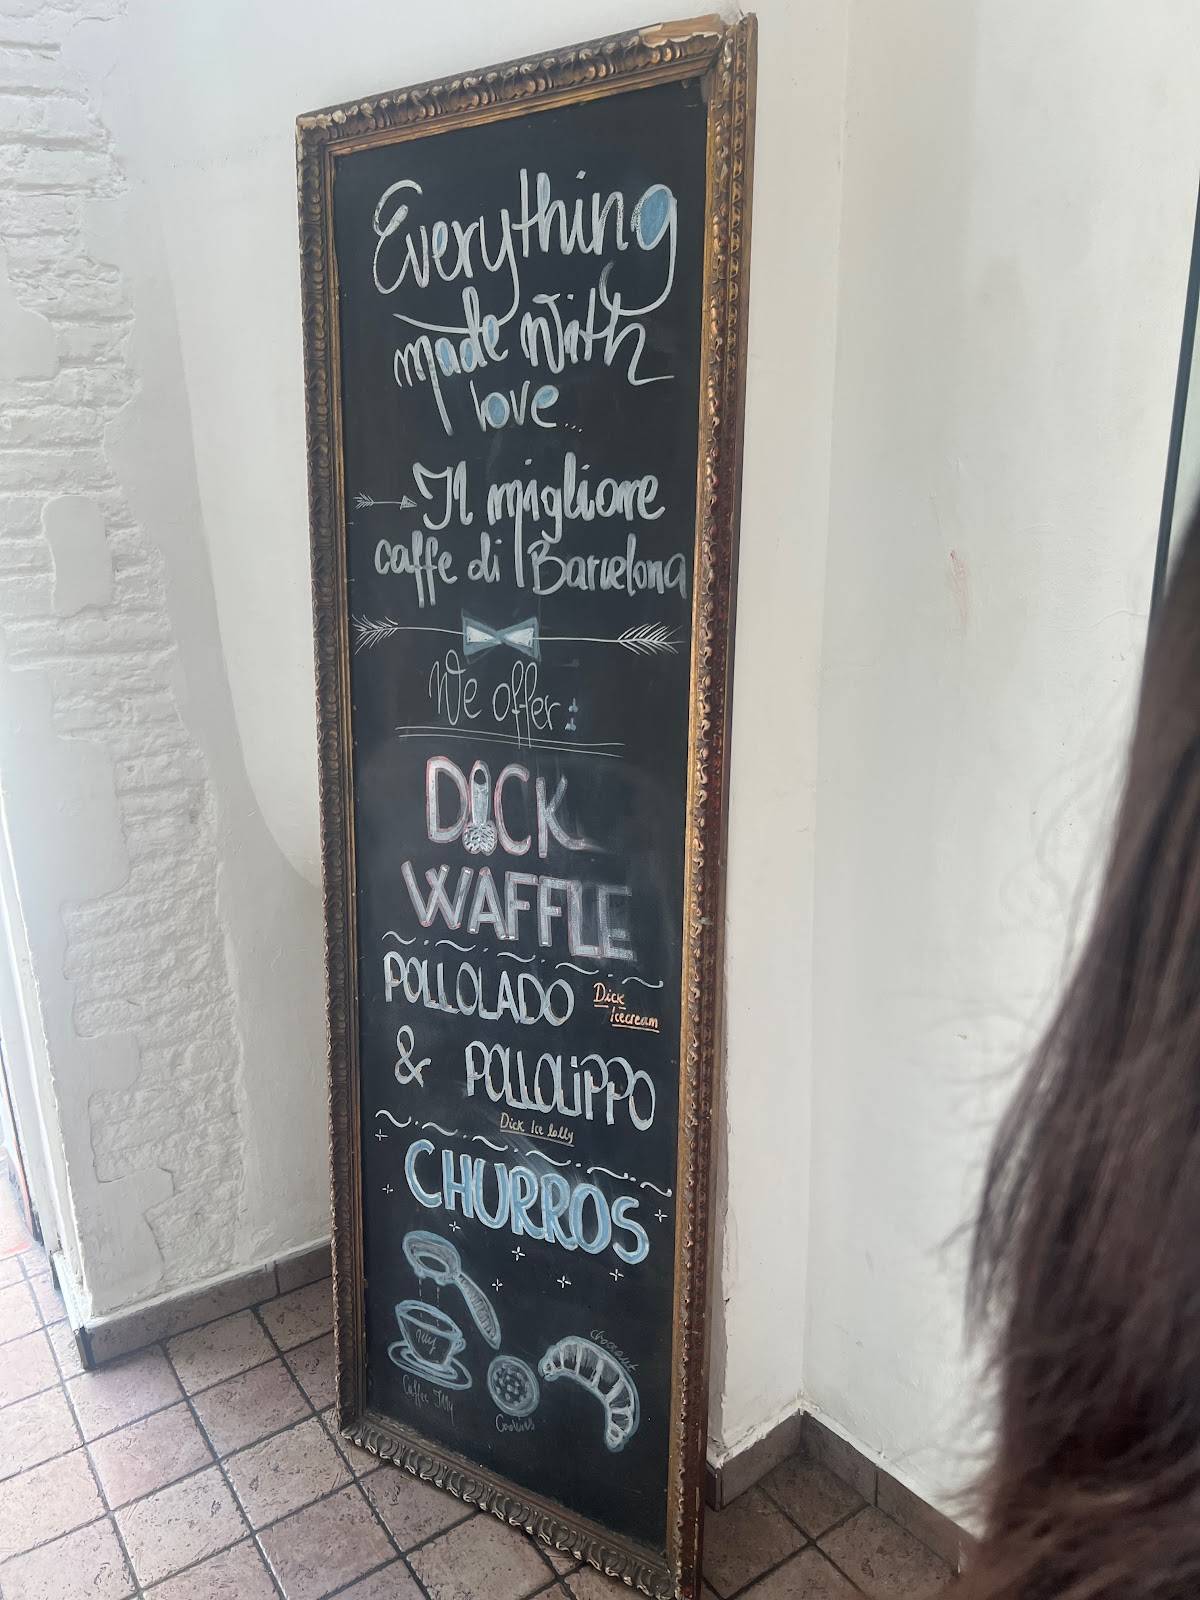 Everything
made with
love...
Il migliore
caffe di Barcelona
We offer:
DICK
WAFFLE
POLLOLADO Dick
Icecream
& POLLOLiPPO
Dick Ice lolly
CHURROS
illy
Caffee Illy
Cookies